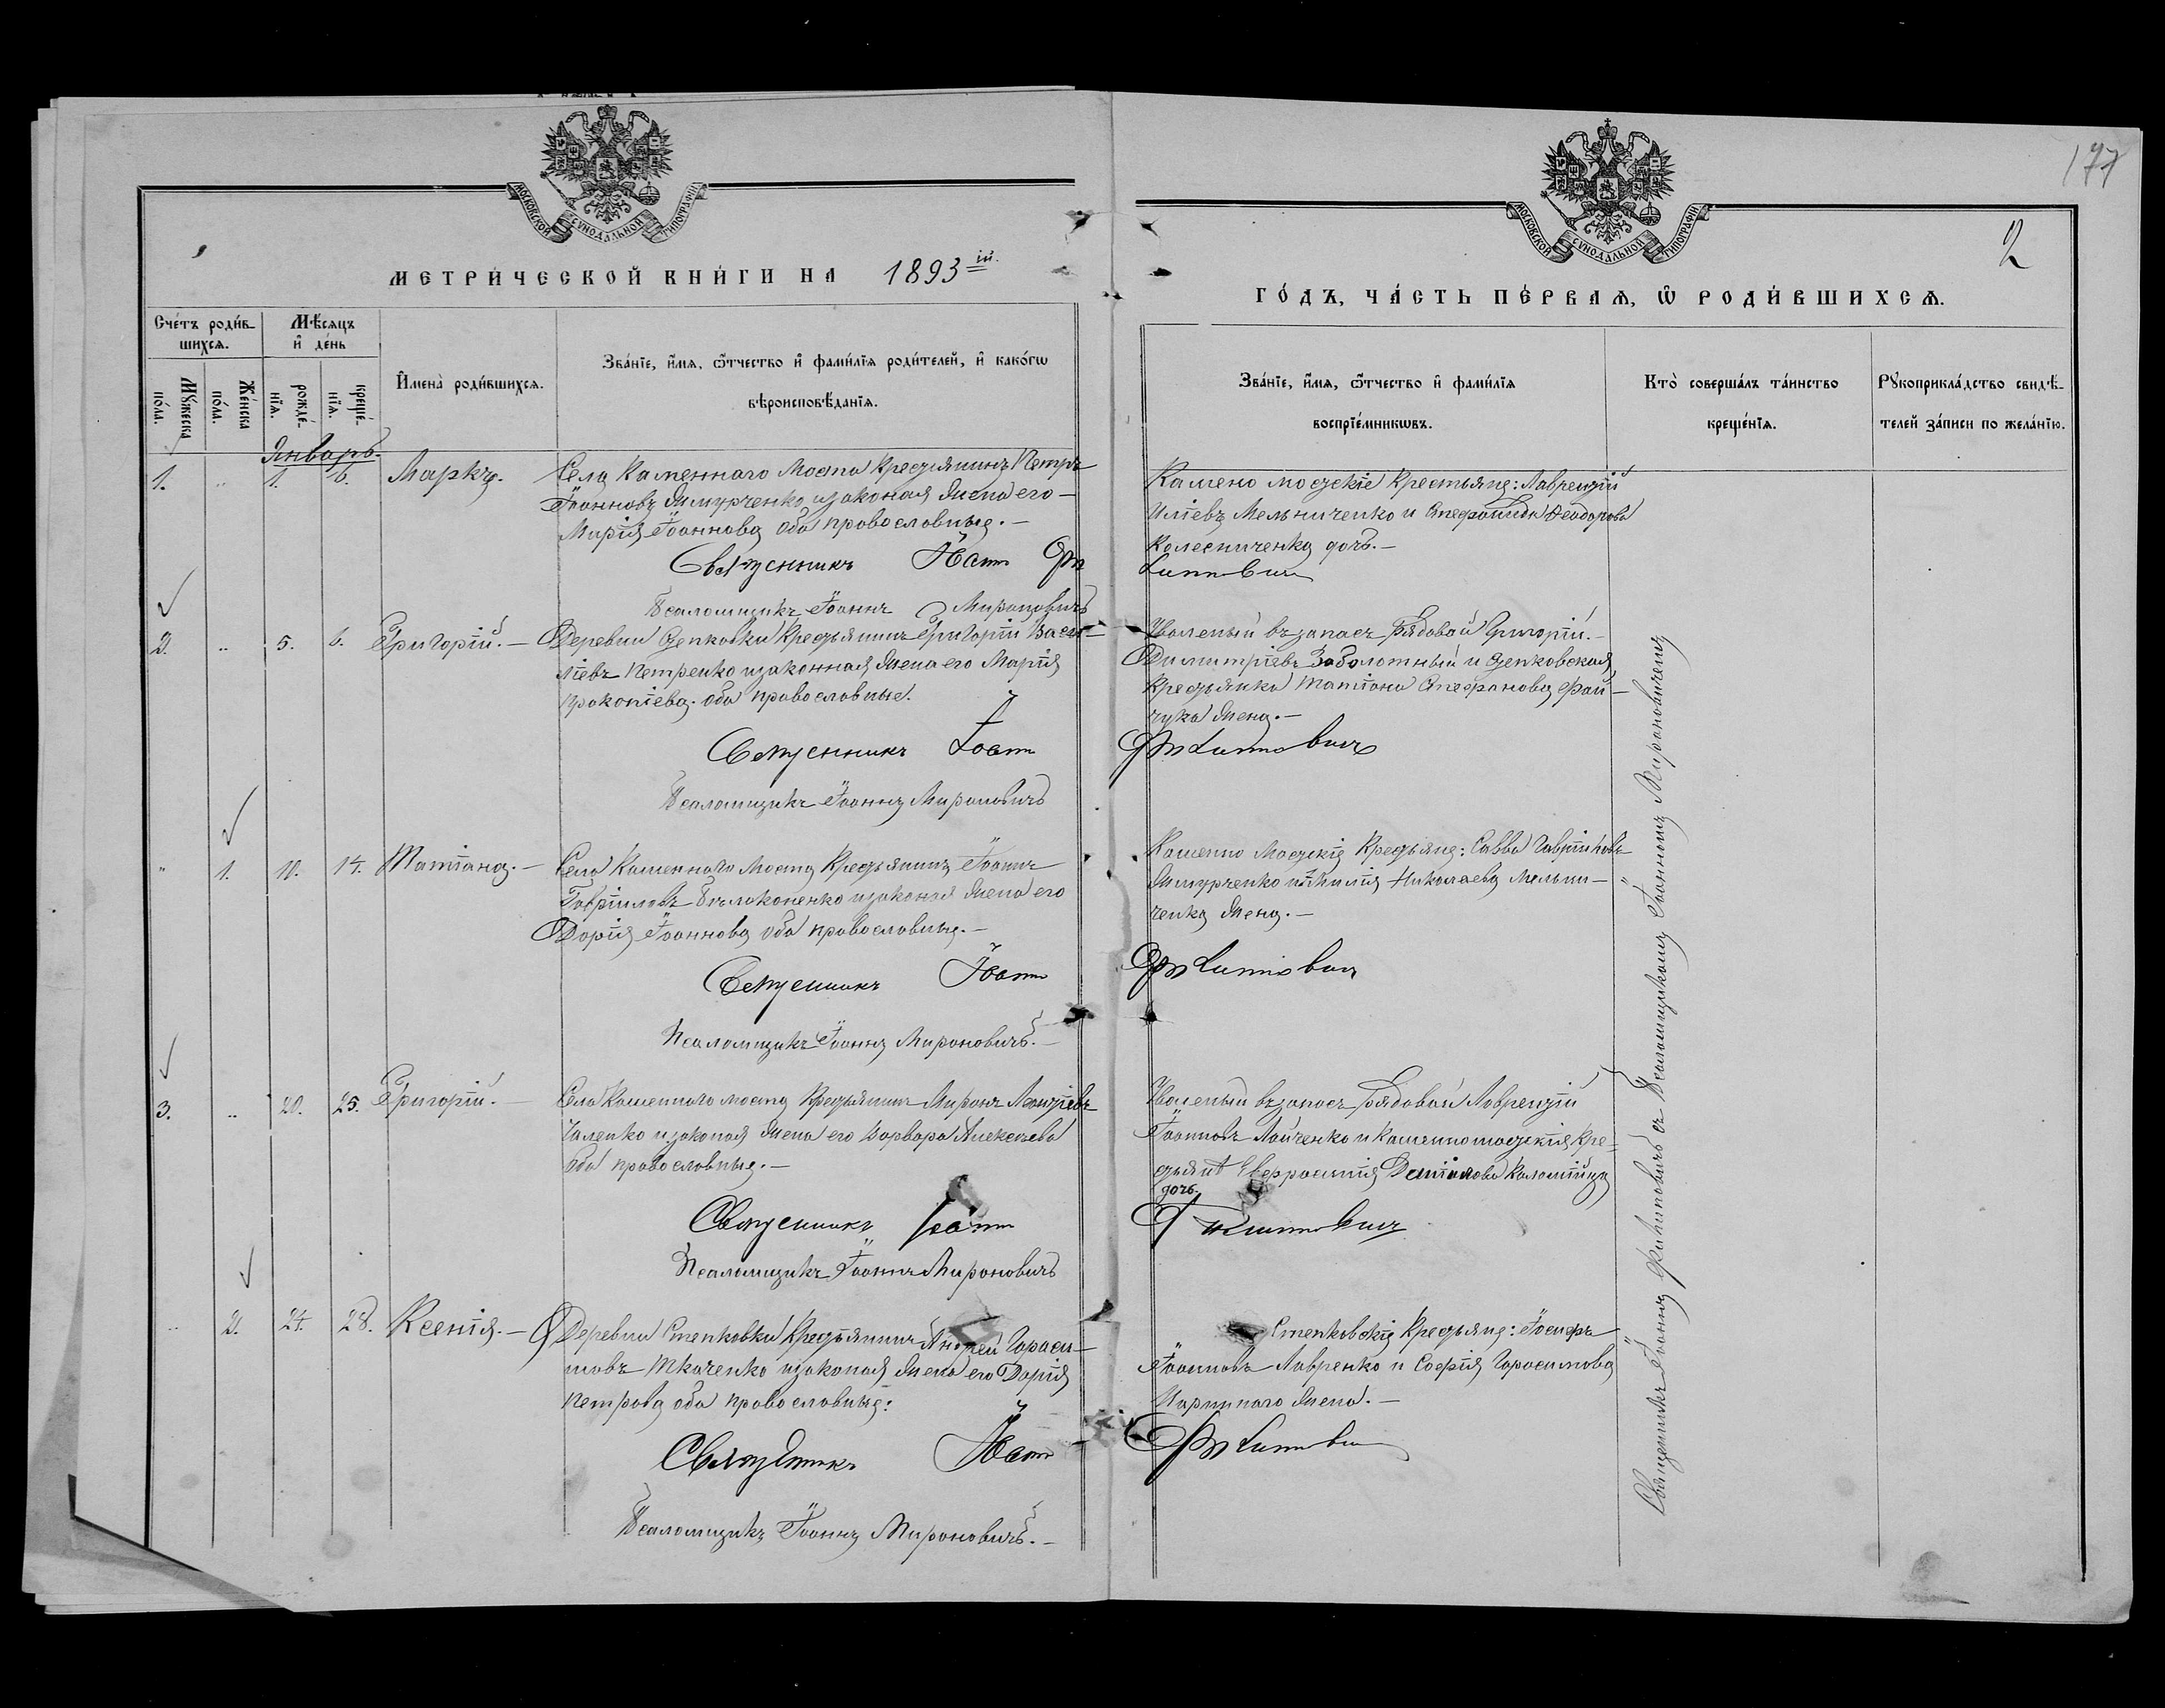 177
МОСКОВСКОЙ СѴНОДАЛЬНОЙ ТИПОГРАФІИ
МОСКОВСКОЙ СѴНОДАЛЬНОЙ ТИПОГРАФІИ
2
МЕТРИ́ЧЕСКОЙ КНИ́ГИ НА 1893 ій.
ГО́ДЪ, ЧА́СТЬ ПЕ́РВАѦ, Ѿ РОДИ́ВШИХСѦ.
Сче́тъ роди́в-
шихсѧ.
Мѣ́сѧцъ
и҆ де́нь
Мꙋ́жеска
по́ла.
Же́нска
по́ла.
рожде́-
нїѧ.
креще́-
нїѧ.
И҆мена̀ роди́вшихсѧ.
Зва́нїе, и҆́мѧ, ѻ҆́тчество и҆ фами́лїѧ роди́телей, и҆ како́гѡ
вѣроисповѣ́данїѧ.
Зва́нїе, и҆́мѧ, ѻ҆́тчество и҆ фами́лїѧ
воспрїе́мникѡвъ.
Кто̀ соверша́лъ та́инство
креще́нїѧ.
Рꙋкоприкла́дство свидѣ́-
телей за́писи по жела́нїю.
Январь.
1. " 1. 6. Маркъ.
Села Каменнаго Моста Крестьянинъ Петръ
Іоанновъ законая жена его
Марія Іоаннова оба православные.
Священникъ Іоаннъ Филиповичъ
Псаломщикъ Іоаннъ Мироновичъ
Камено мостскіе Крестьяне: Лаврентій
Иліевъ Мельниченко и Стефанида Феодорова
Колесниченка дочь.
2. " 5. 6. Григорій.
Деревни Степковки Крестьянинъ Григорій Васи-
ліевъ Петренко и законная жена его Марія
Прокопіева. оба православные.
Священникъ Іоаннъ Филиповичъ
Псаломщикъ Іоаннъ Мироновичъ
Уволеный въ запасъ рядовой Григорій
Димитріевъ Заболотный и Степковская
Крестьянка Татіана Стефанова
жена.
" 1. 10. 14. Татіана.
Села Каменнаго Моста Крестьянинъ Іоаннъ
Гавріиловъ и законая жена его
Дарія Іоаннова оба православные.
Священникъ Іоаннъ Филиповичъ
Псаломщикъ Іоаннъ Мироновичъ.
Каменно Мостскіе Крестьяне: Савва Гавріиловъ
Николаева Мельни-
ченка жена.
3. " 20. 25. Григорій.
Села Каменнаго моста Крестьянинъ Миронъ
и законая жена его Варвара Алексеева
оба православные.
Священникъ Іоаннъ Филиповичъ
Псаломщикъ Іоаннъ Мироновичъ
Уволеный въ запасъ рядовой Лаврентій
Іоанновъ и Каменномостскія Кре-
Евфросинія Даніилова Коломійца
дочь.
" 2. 24. 28. Ксенія.
Деревни Степковки Крестьянинъ Андрей Гараси-
мовъ Ткаченко и законая жена его Дарія
Петрова оба православные:
Священникъ Іоаннъ Филиповичъ
Псаломщикъ Іоаннъ Мироновичъ.
Степковскіе Крестьяне: Іосифъ
Іоанновъ Лавренко и Софія Гарасимова
жена.
Священникъ Іоаннъ Филиповичъ съ Псаломщикомъ Іоанномъ Мироновичемъ